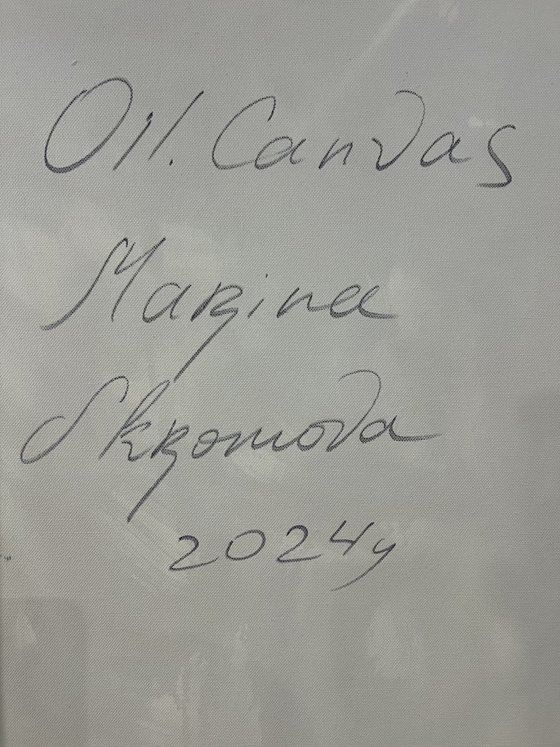 Oil. Canvas
Marina
Skromova
2024y